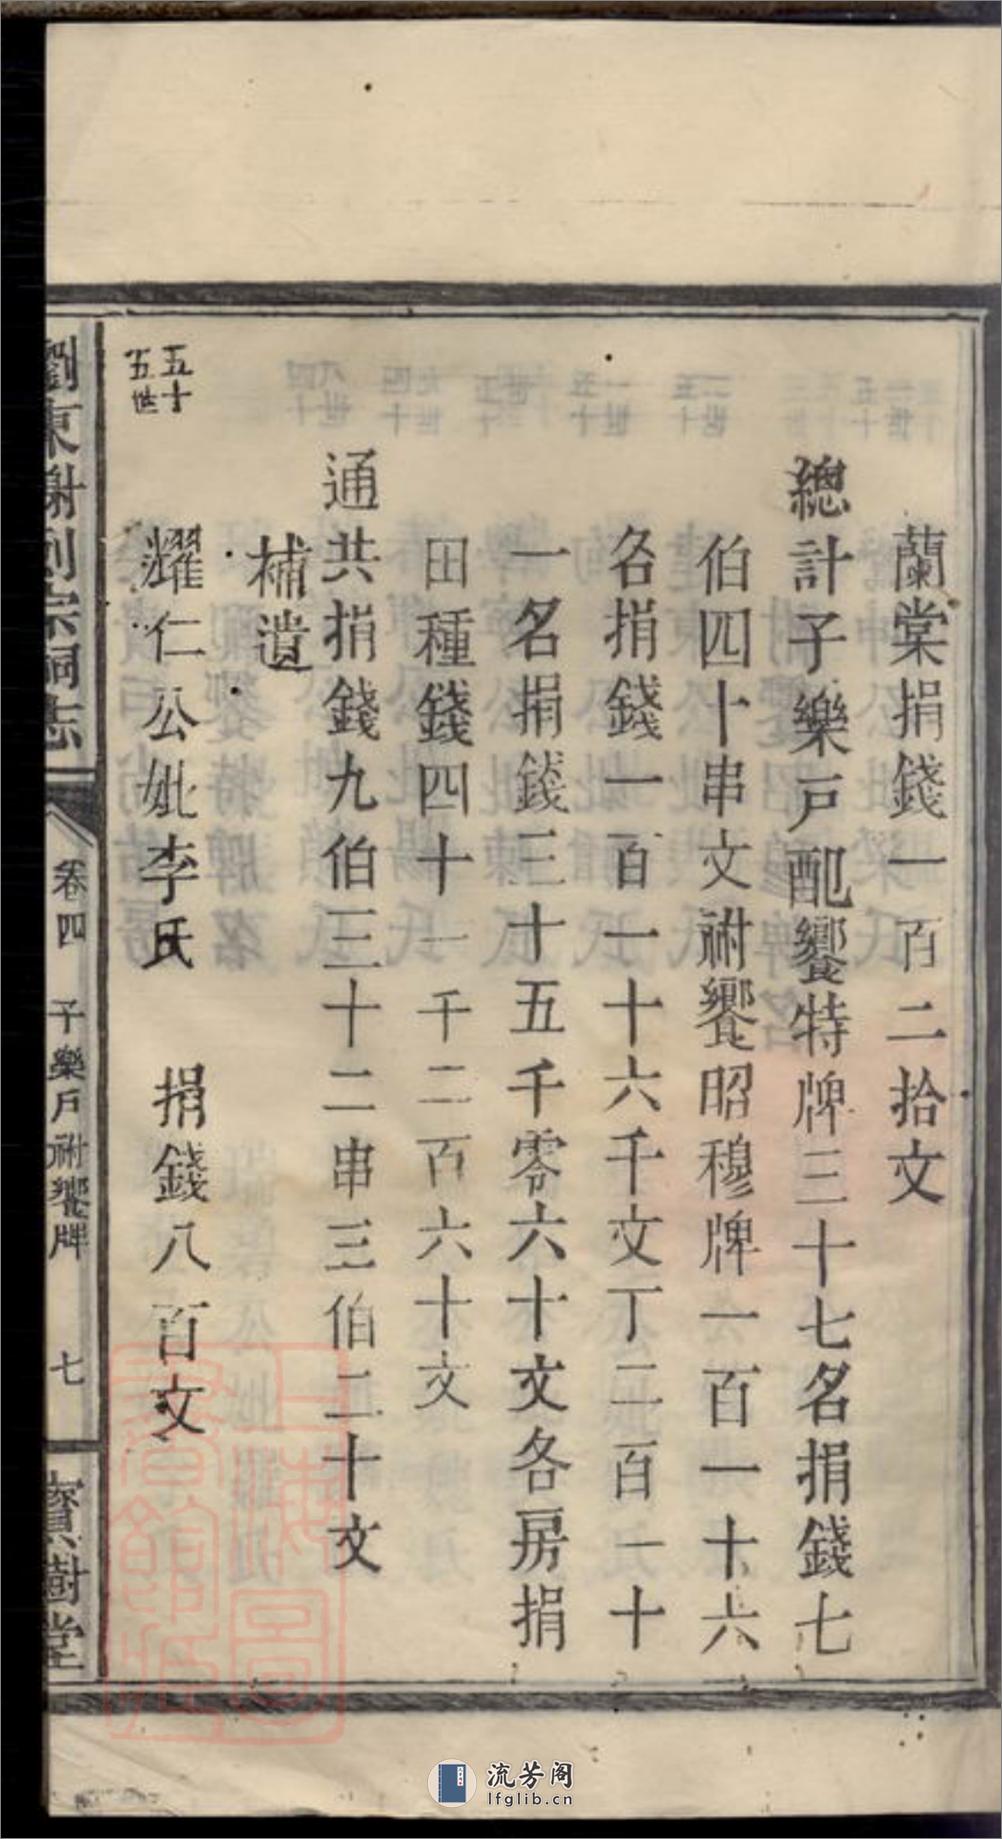 蘭棠捐錢一百二拾文
總計子樂戶配饗特牌三十七名捐錢七
伯四十串文祔饗昭穆牌一百一十六
名捐錢一百一十六千文丁二百一十
一名捐錢三十五千零六十文各房捐
田種錢四十一千二百六十文
通共捐錢九伯三十二串三伯二十文
補遺
五十
五世
耀仁公妣李氏 捐錢八百文
劉東謝列宗祠志
卷四 子樂戶祔饗牌 七
寳樹堂
上海圖書館藏
流芳阁
lfglib.cn